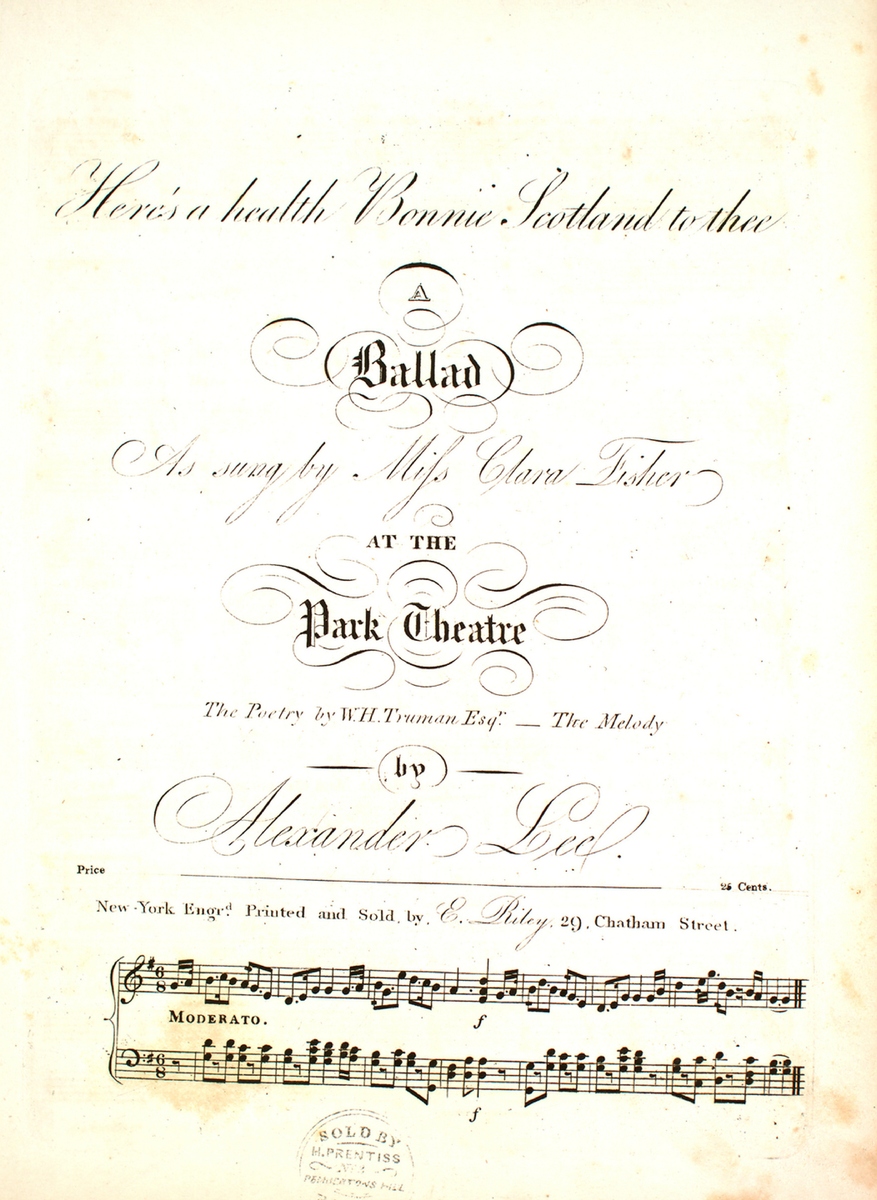 Here's a health Bonnie Scotland to thee
A
Ballad
As sung by Miſs Clara Fisher
AT THE
Park Theatre
The Poetry by W.H. Truman Esqr. — The Melody
by
Alexander Lee.
Price 25 Cents.
New-York Engrd. Printed and Sold, by, E. Riley, 29, Chatham Street.
6/8
MODERATO.
f
6/8
f
SOLD BY
H. PRENTISS